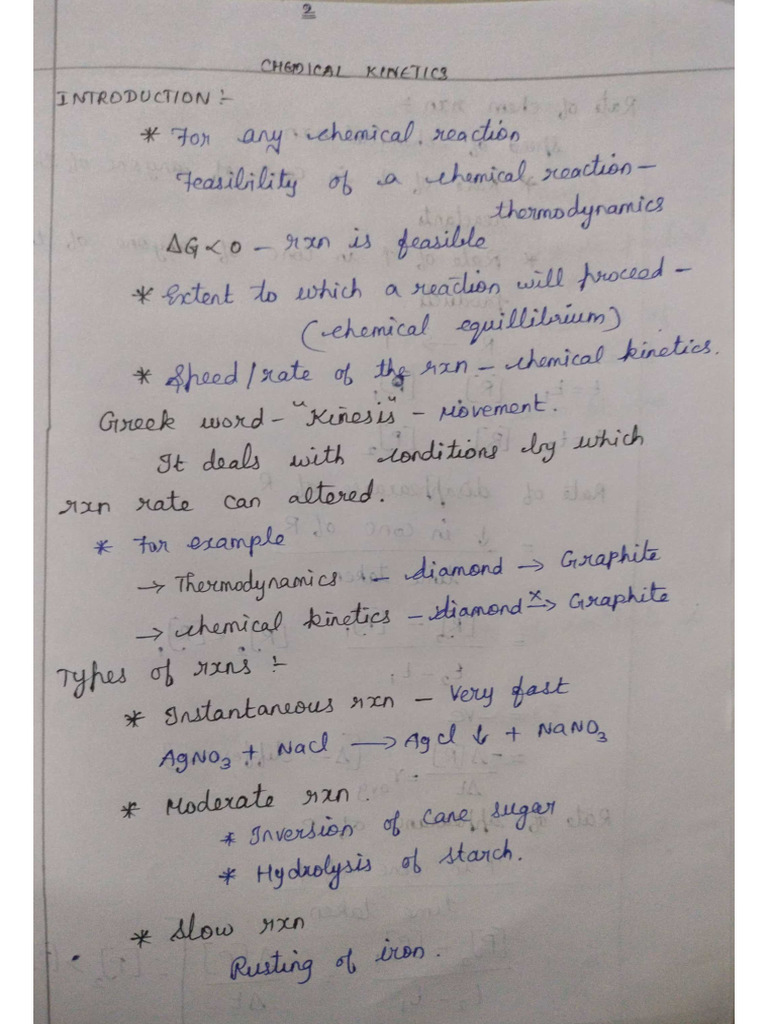 2
CHEMICAL KINETICS
INTRODUCTION :-
* For any chemical reaction
Feasibility of a chemical reaction -
thermodynamics
ΔG < 0 - rxn is feasible
* Extent to which a reaction will proceed -
(chemical equillibrium)
* Speed/rate of the rxn - chemical kinetics.
Greek word - "Kinesis" - Movement.
It deals with conditions by which
rxn rate can altered.
* For example
→ Thermodynamics - diamond → Graphite
→ chemical kinetics - diamond x→ Graphite
Types of rxns :-
* Instantaneous rxn - Very fast
AgNO₃ + NaCl → AgCl ↓ + NaNO₃
* Moderate rxn.
* Inversion of Cane sugar
* Hydrolysis of starch.
* Slow rxn
Rusting of iron.